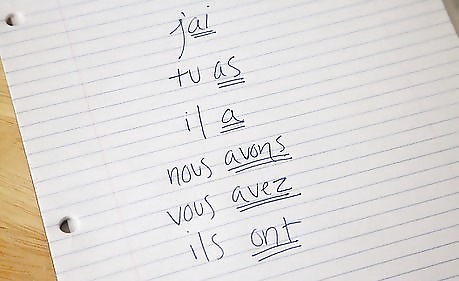 j'ai
tu as
il a
nous avons
vous avez
ils ont